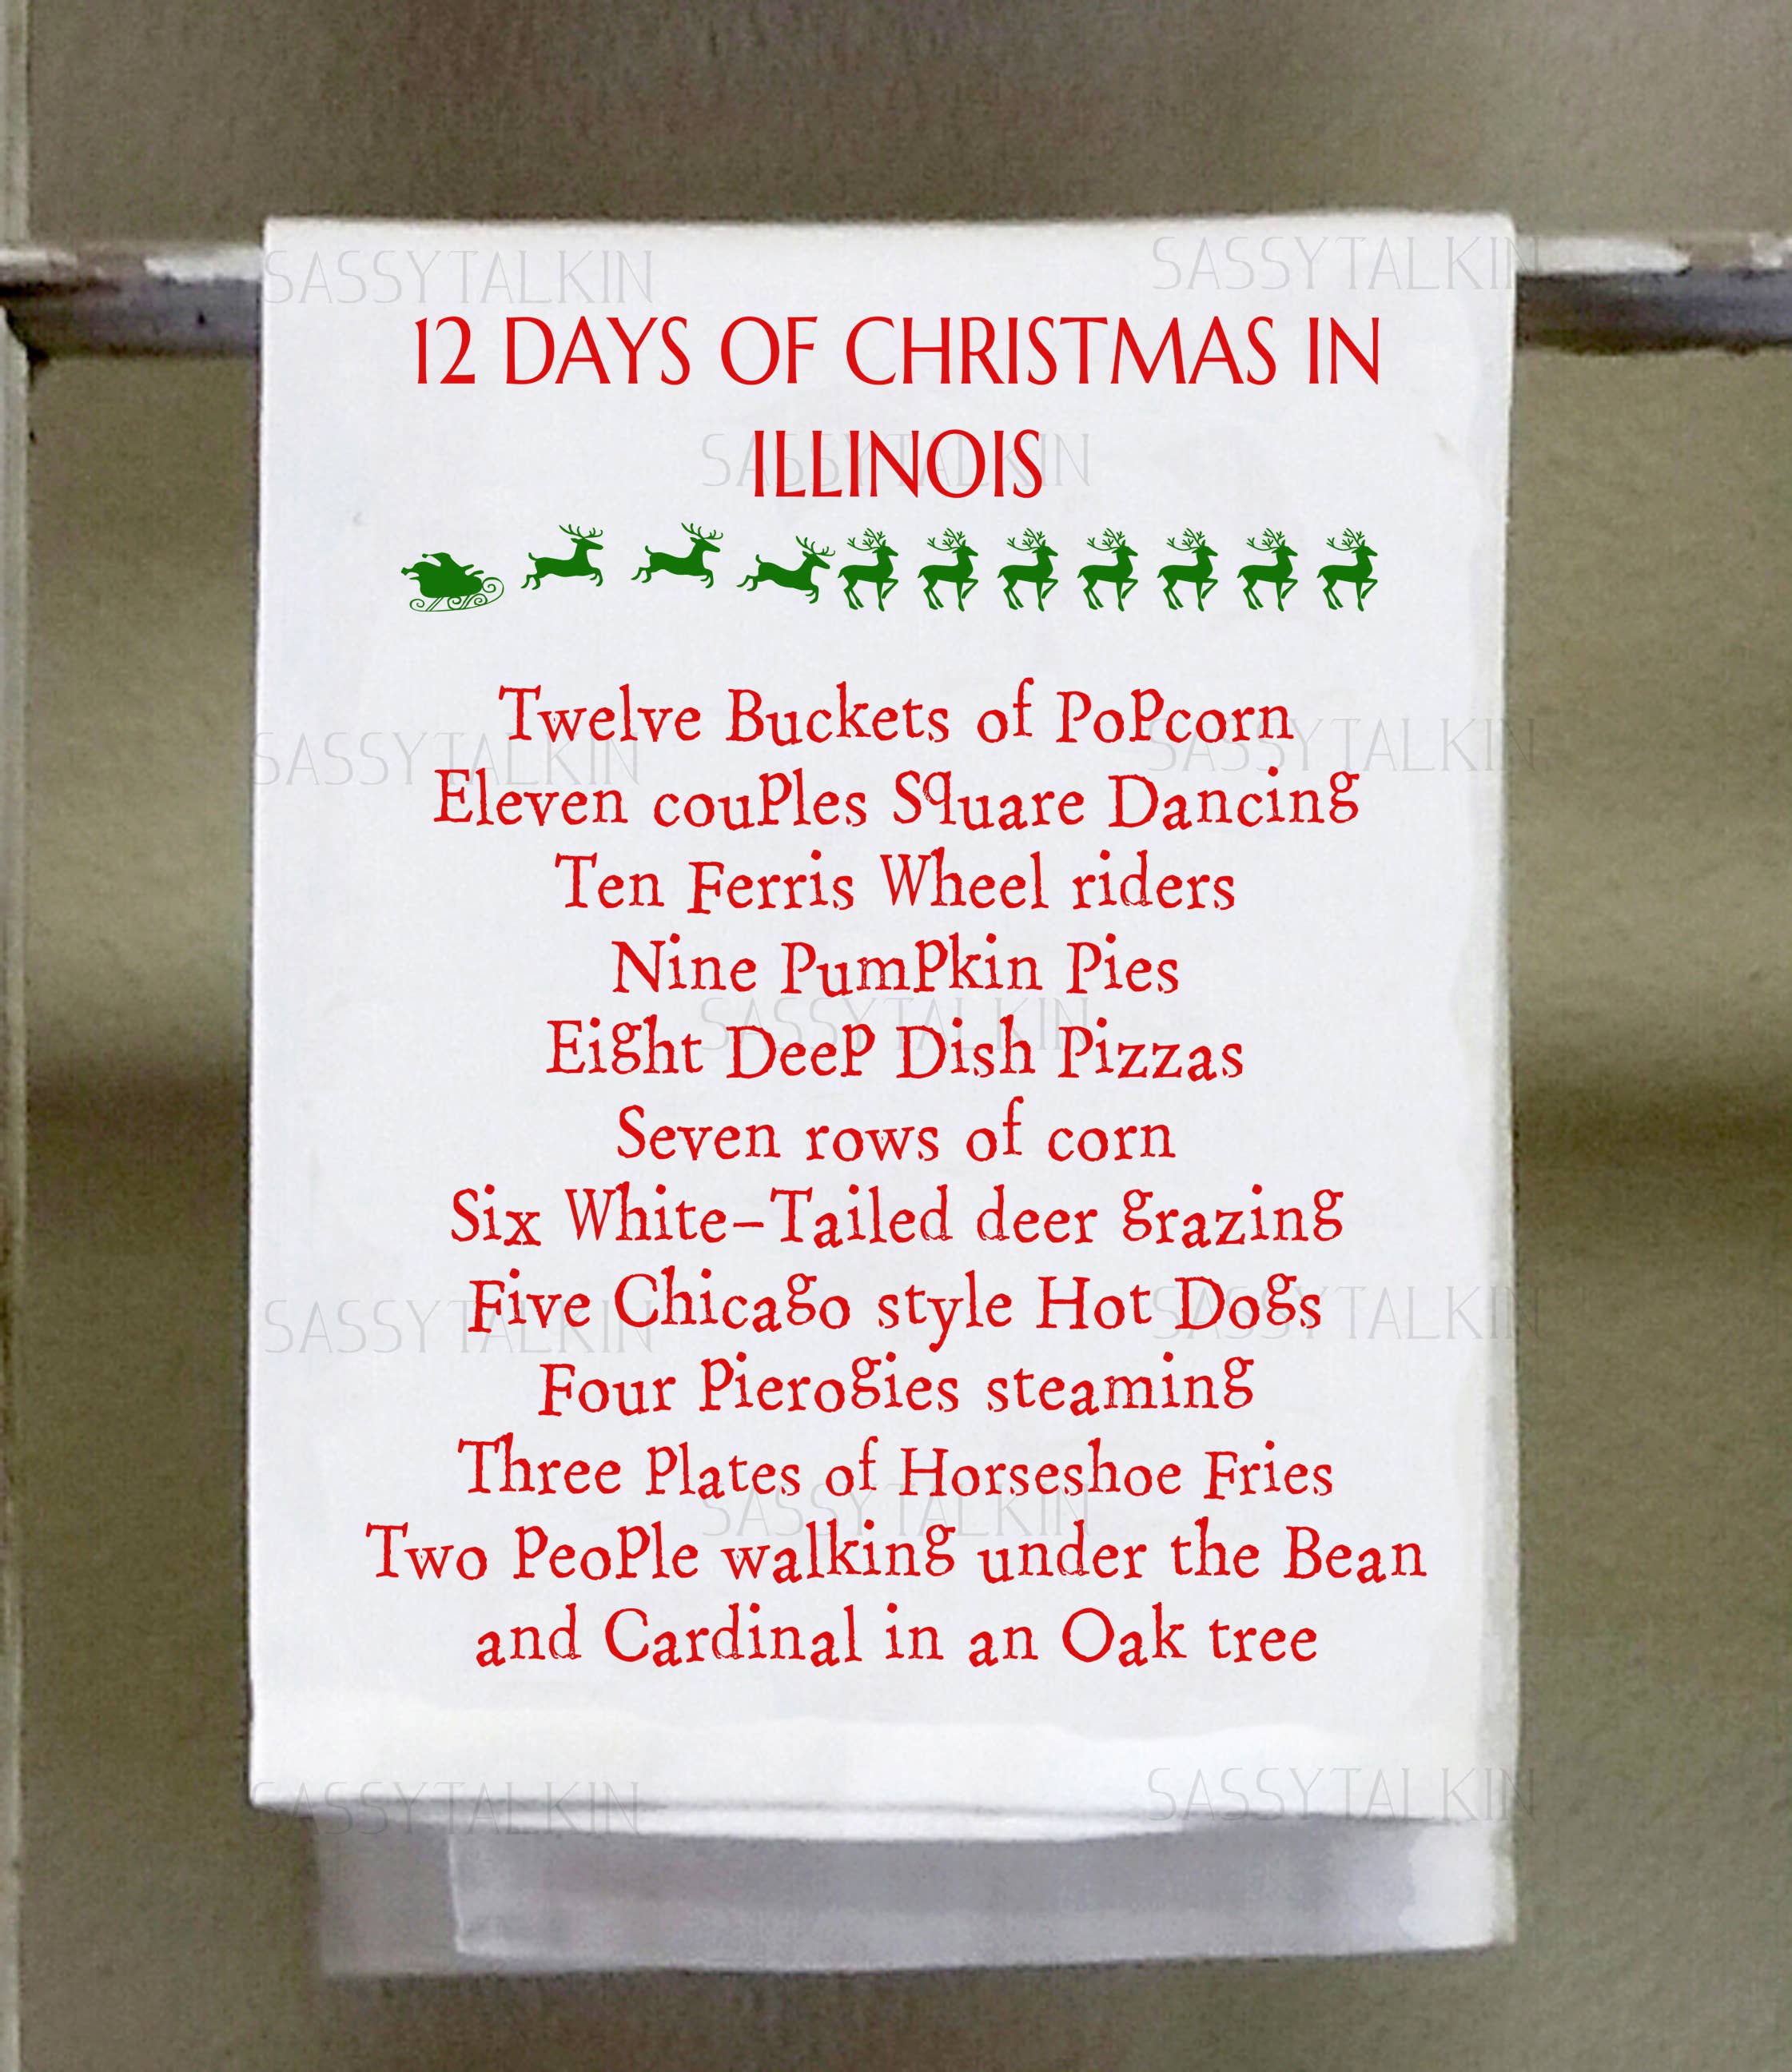 SASSYTALKIN SASSYTALKIN
12 DAYS OF CHRISTMAS IN
ILLINOIS
SASSYTALKIN
Twelve Buckets of PoPcorn
SASSYTALKIN SASSYTALKIN
Eleven couPles Square Dancing
Ten Ferris Wheel riders
Nine PumPkin Pies
SASSYTALKIN
Eight DeeP Dish Pizzas
Seven rows of corn
Six White-Tailed deer grazing
Five Chicago style Hot Dogs
SASSYTALKIN SASSYTALKIN
Four Pierogies steaming
Three Plates of Horseshoe Fries
SASSYTALKIN
Two PeoPle walking under the Bean
and Cardinal in an Oak tree
SASSYTALKIN SASSYTALKIN